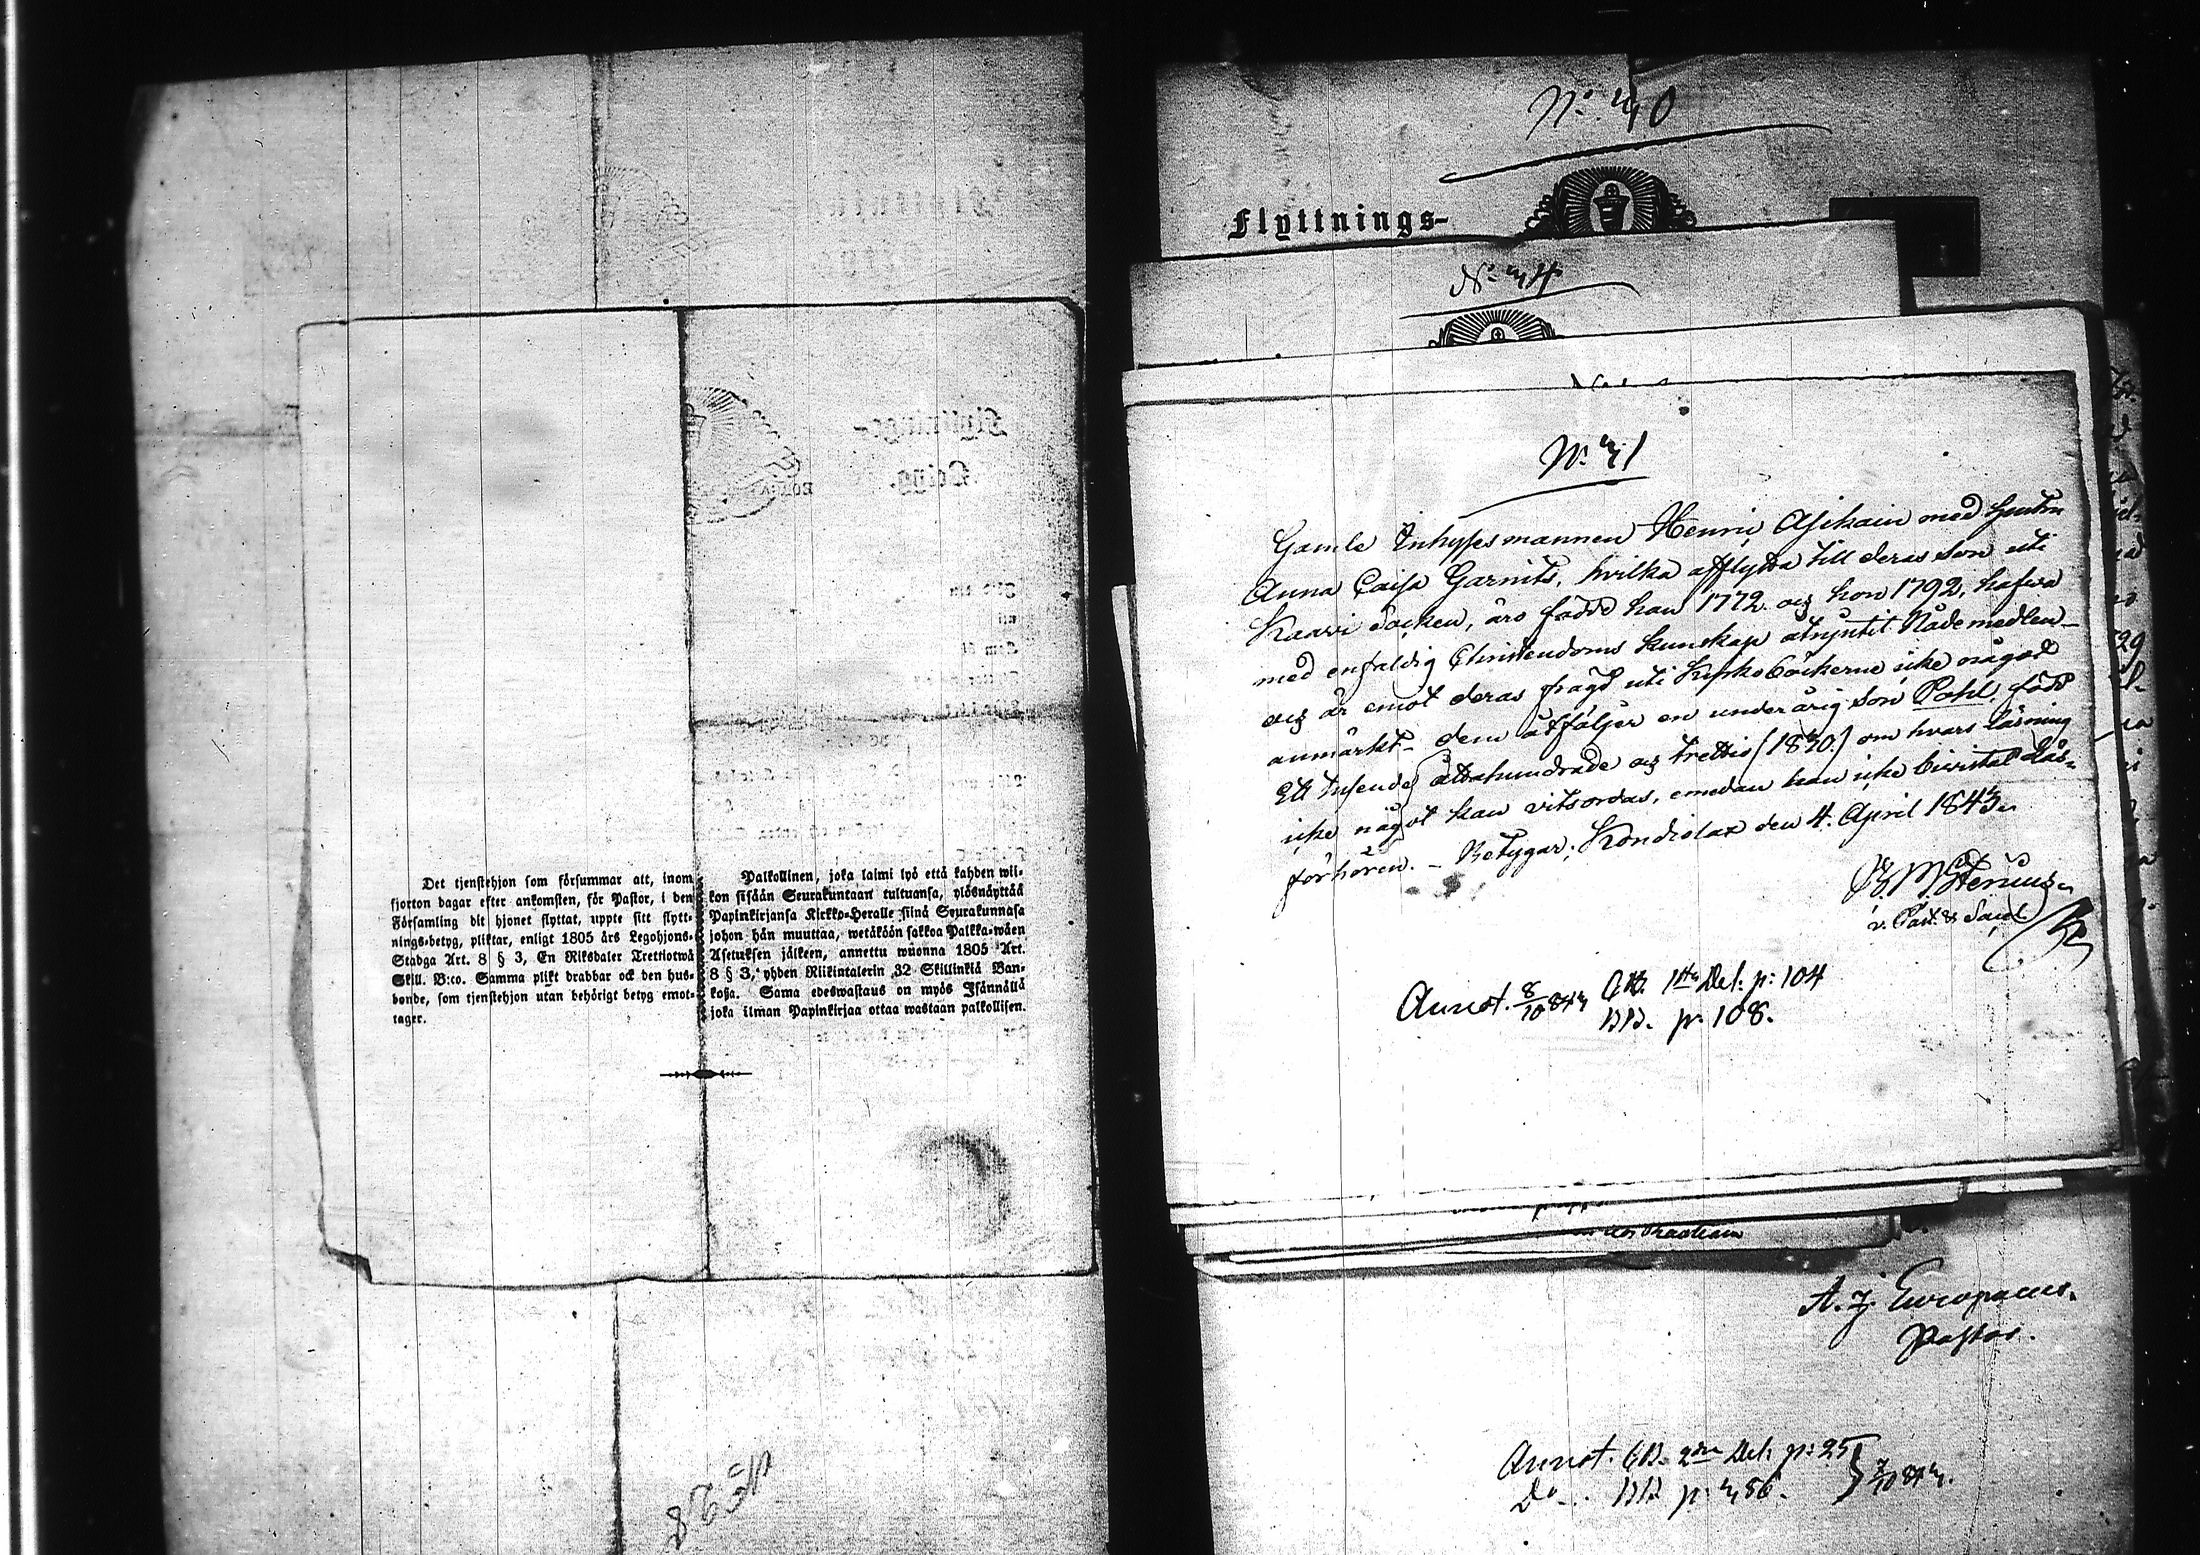 Det tjenstehjon som försummar att, inom
fjorton dagar efter ankomsten, för Pastor, i den
Församling dit hjonet flyttat, uppte sitt flytt-
nings-betyg, pliktar, enligt 1805 års Legohjons-
Stadga Art. 8 § 3, En Riksdaler Trettiotwå
Skill. B:co. Samma plikt drabbar ock den hus-
bonde, som tjenstehjon utan behörigt betyg emot-
tager.
Palkollinen, joka laimi lyö että kahden wii-
kon sisään Seurakuntaan tultuansa, ylösnäyttää
Papinkirjansa Kirkko-Heralle siinä Seurakunnasa
johon hän muuttaa, wetäköön sakkoa Palkka-wäen
Asetuksen jälkeen, annettu wuonna 1805 Art.
8 § 3, yhden Riikintalerin 32 Skillinkiä Ban-
kosa. Sama edeswastaus on myös Isännällä
joka ilman Papinkirjaa ottaa wastaan palkollisen.
Flyttnings-
Gamle Inhysesmannen Henric Asikain med hustru
Anna Caisa Garnits, hvilka afflytta till deras Son uti
Kaavi Socken, äro födde han 1772 och hon 1792, hafva
med enfaldig Christendoms kunskap åtnjutit Nådemedlen
och är emot deras frägd uti Kyrkoböckerne icke något
anmärkt. dem åtföljer en underårig Son Påhl, född
Ett tusende åttahundrade och trettio (1830) om hvars läsning
icke något kan vitsordas, emedan han icke bivistat Läs-
förhören. – Betygar; Kondiolax den 4. April 1843.
v. Past. &
Annot. 8/10 843 CB. 1sta Del: p: 104
BB. p. 108.
A. J. Europaeus.
Pastor.
Annot. CB. 2dra Del. p: 25
Do... BB p: 356.
7/10 843.